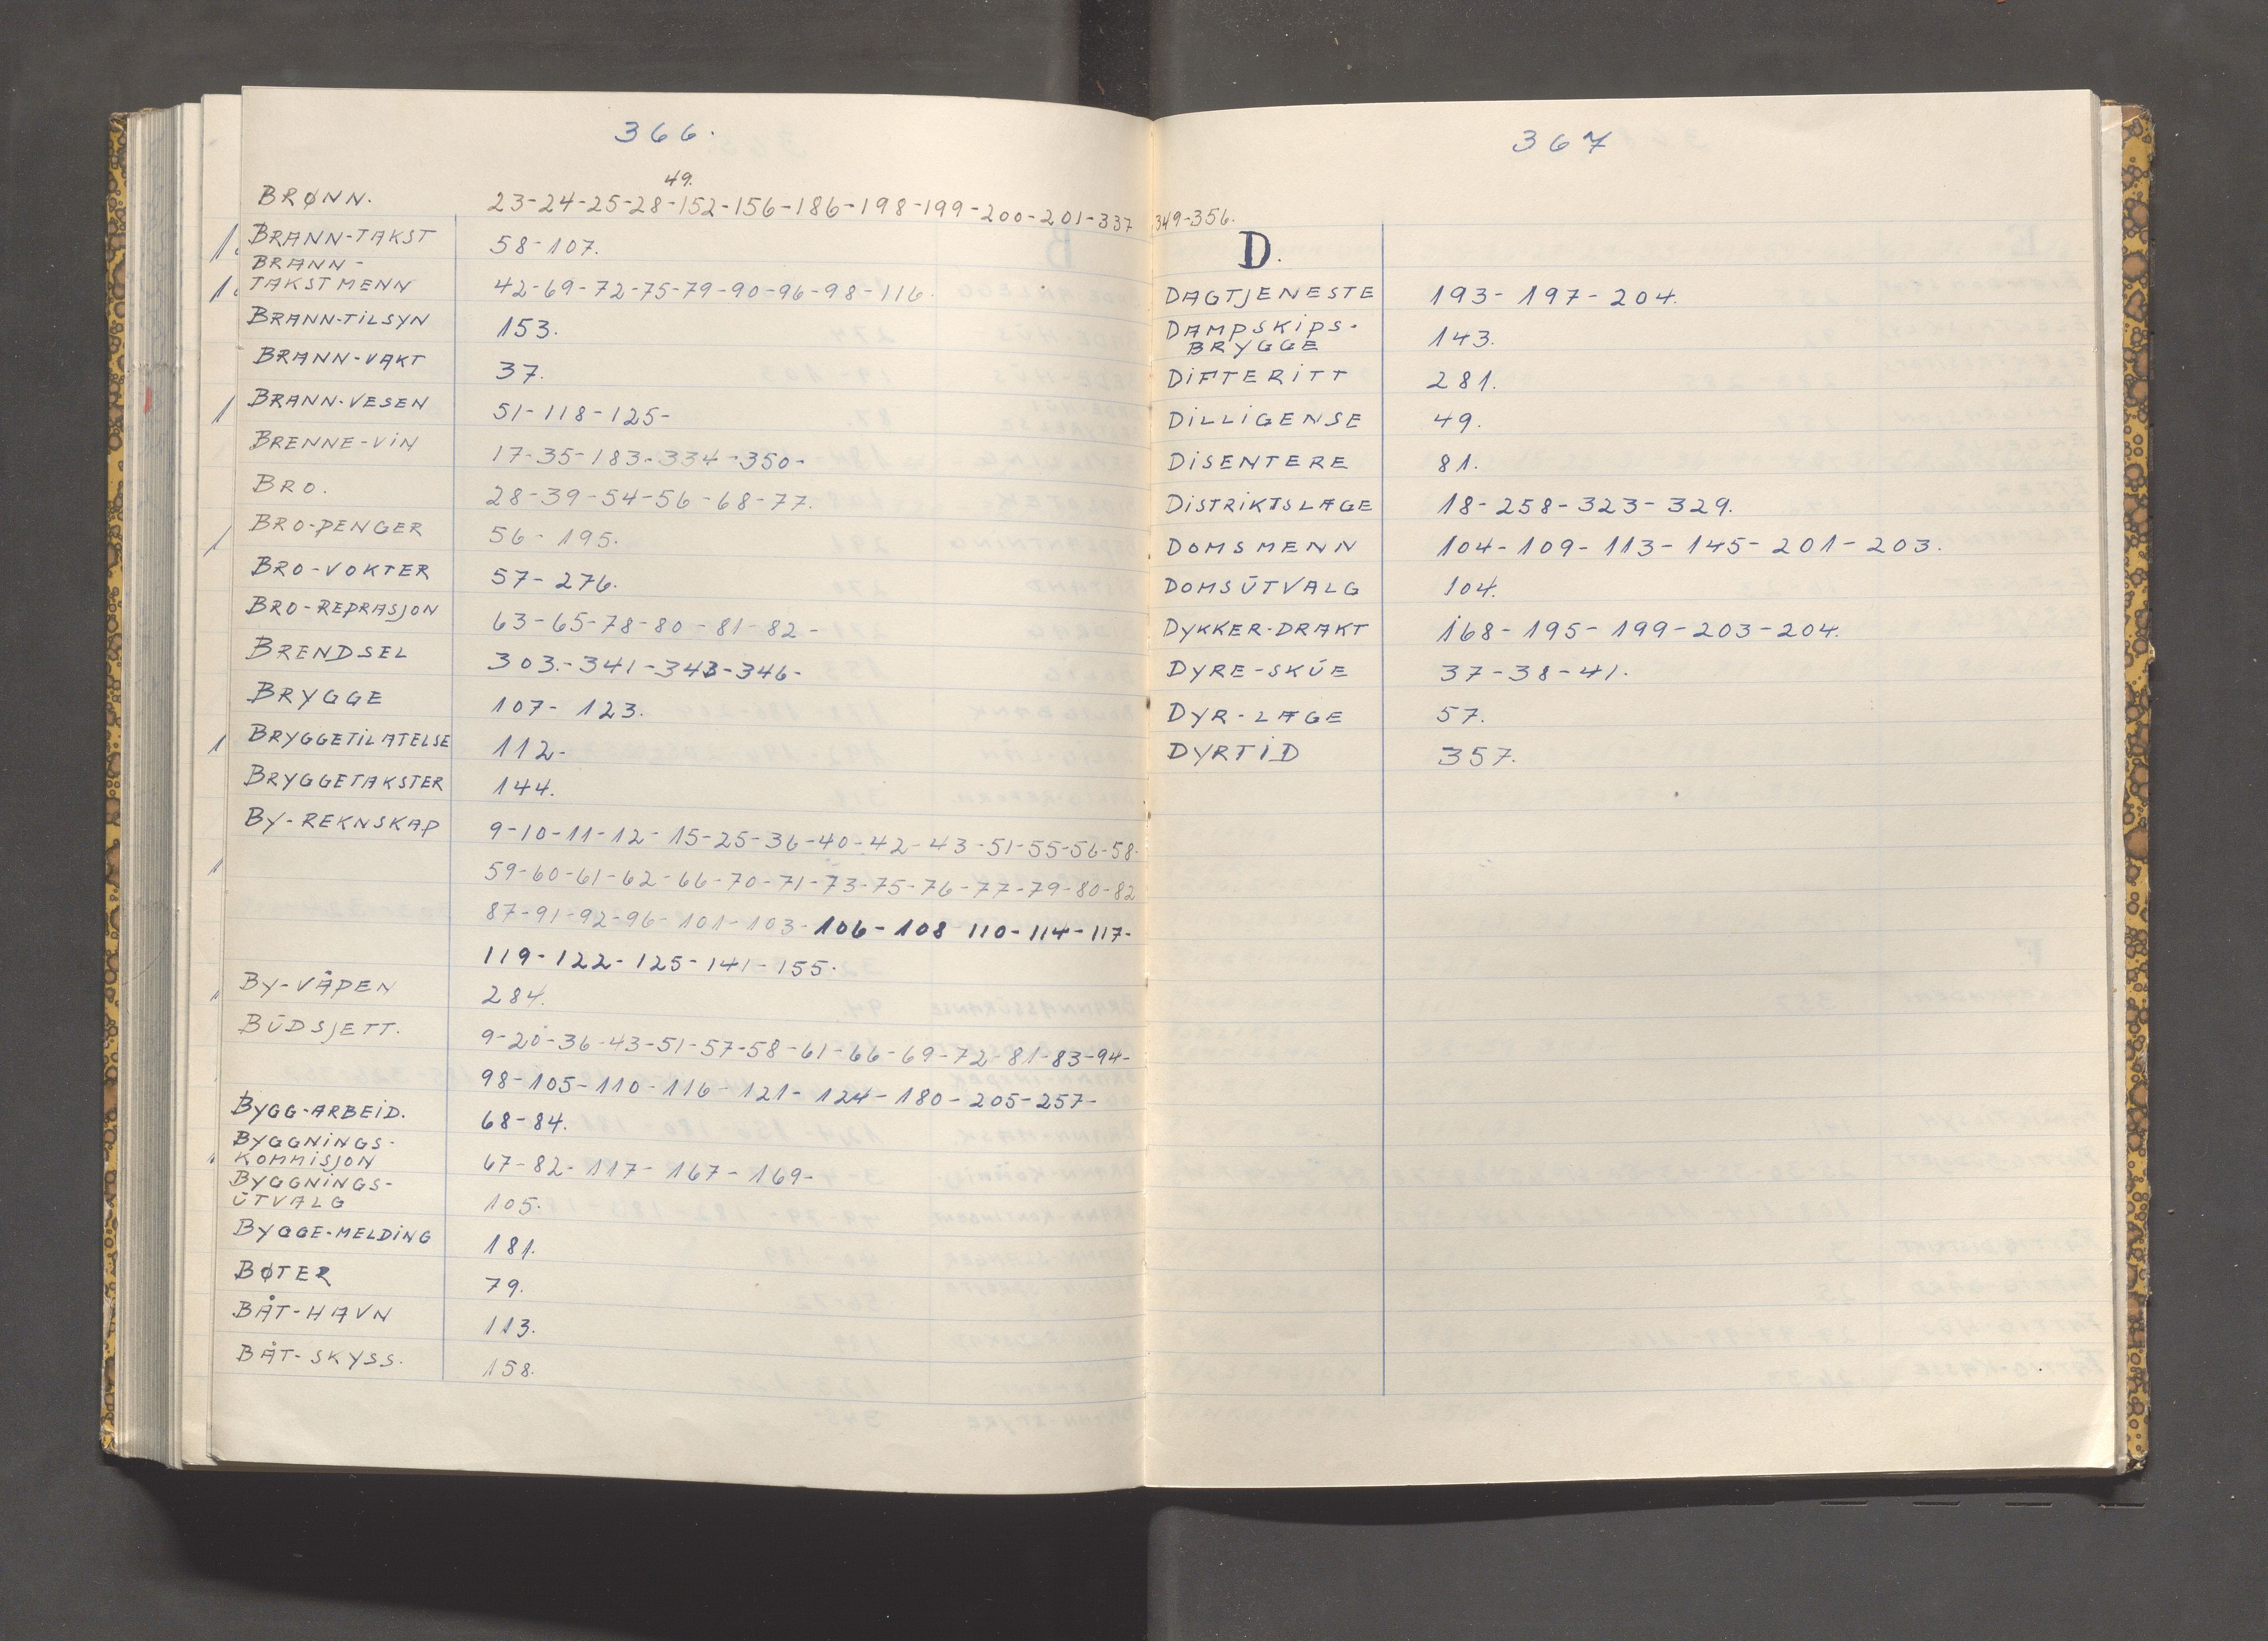 366.
49.
BRØNN. 23-24-25-28-152-156-186-198-199-200-201-337 349-356.
BRANN-TAKST 58-107.
BRANN-
TAKSTMENN 42-69-72-75-79-90-96-98-116.
BRANN-TILSYN 153.
BRANN-VAKT 37.
BRANN-VESEN 51-118-125-
BRENNE-VIN 17-35-183-334-350-
BRO. 28-39-54-56-68-77.
BRO-PENGER 56-195.
BRO-VOKTER 57-276.
BRO-REPRASJON 63-65-78-80-81-82-
BRENDSEL 303.-341-343-346-
BRYGGE 107-123.
BRYGGETILATELSE 112-
BRYGGETAKSTER 144.
BY-REKNSKAP 9-10-11-12-15-25-36-40-42-43-51-55-56-58-
59-60-61-62-66-70-71-73-75-76-77-79-80-82
87-91-92-96-101-103-106-108 110-114-117-
119-122-125-141-155.
BY-VÅPEN 284.
BŪDSJETT. 9-20-36-43-51-57-58-61-66-69-72-81-83-94-
98-105-110-116-121-124-180-205-257-
BYGG-ARBEID. 68-84.
BYGGNINGS-
KOMMISJON 67-82-117-167-169-
BYGGNINGS-
ŪTVALG 105.
BYGGE-MELDING 181.
BØTER 79.
BÅT-HAVN 113.
BÅT-SKYSS. 158.
367
D.
DAGTJENESTE 193-197-204.
DAMPSKIPS-
BRYGGE 143.
DIFTERITT 281.
DILLIGENSE 49.
DISENTERE 81.
DISTRIKTSLÆGE 18-258-323-329.
DOMSMENN 104-109-113-145-201-203.
DOMSŪTVALG 104.
DYKKER-DRAKT 168-195-199-203-204.
DYRE-SKŪE 37-38-41.
DYR-LÆGE 57.
DYRTID 357.